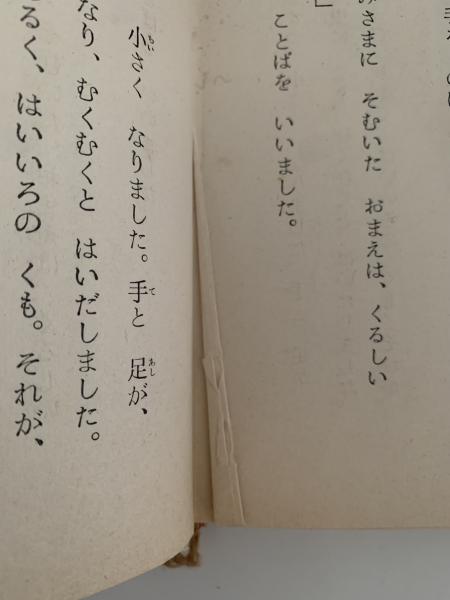 みさまに そむいた おまえは、くるしい
ことばを いいました。
」
小さく なりました。手と 足が、
なり、むくむくと はいだしました。
るく、はいいろの くも。それが、